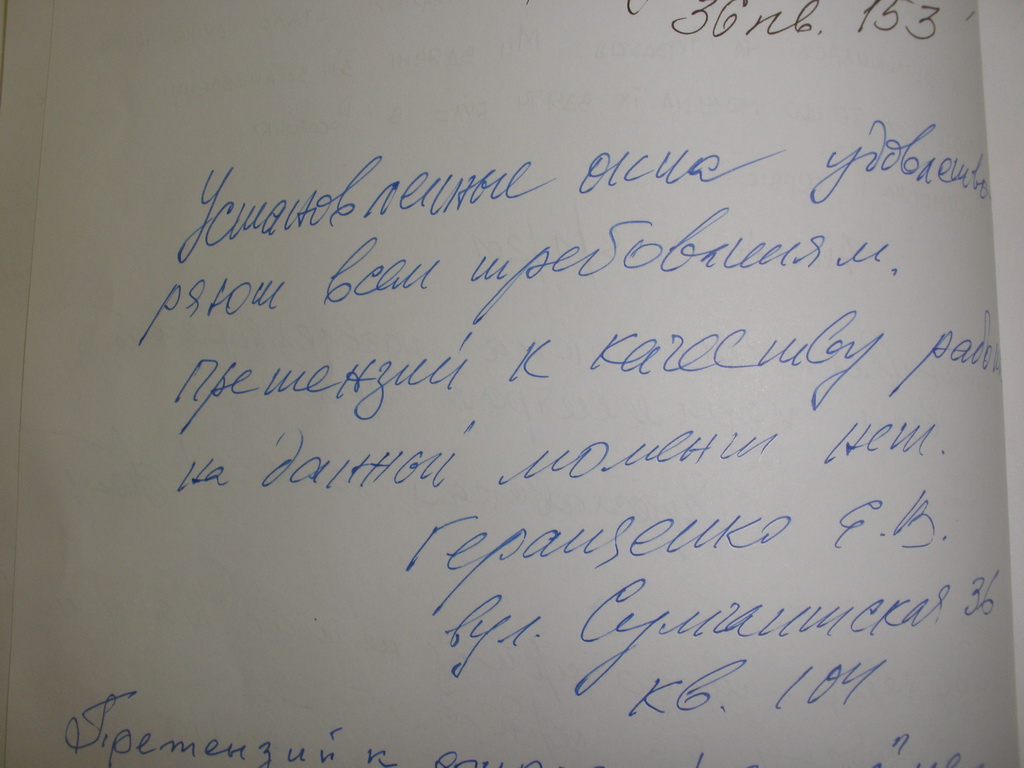 36 кв. 153
Установленные окна удовлетво
ряют всем требованиям.
Претензий к качеству работ
на данный момент нет.
Геращенко Е.В.
вул. Сумгаитская 36
кв. 104
Претензий к